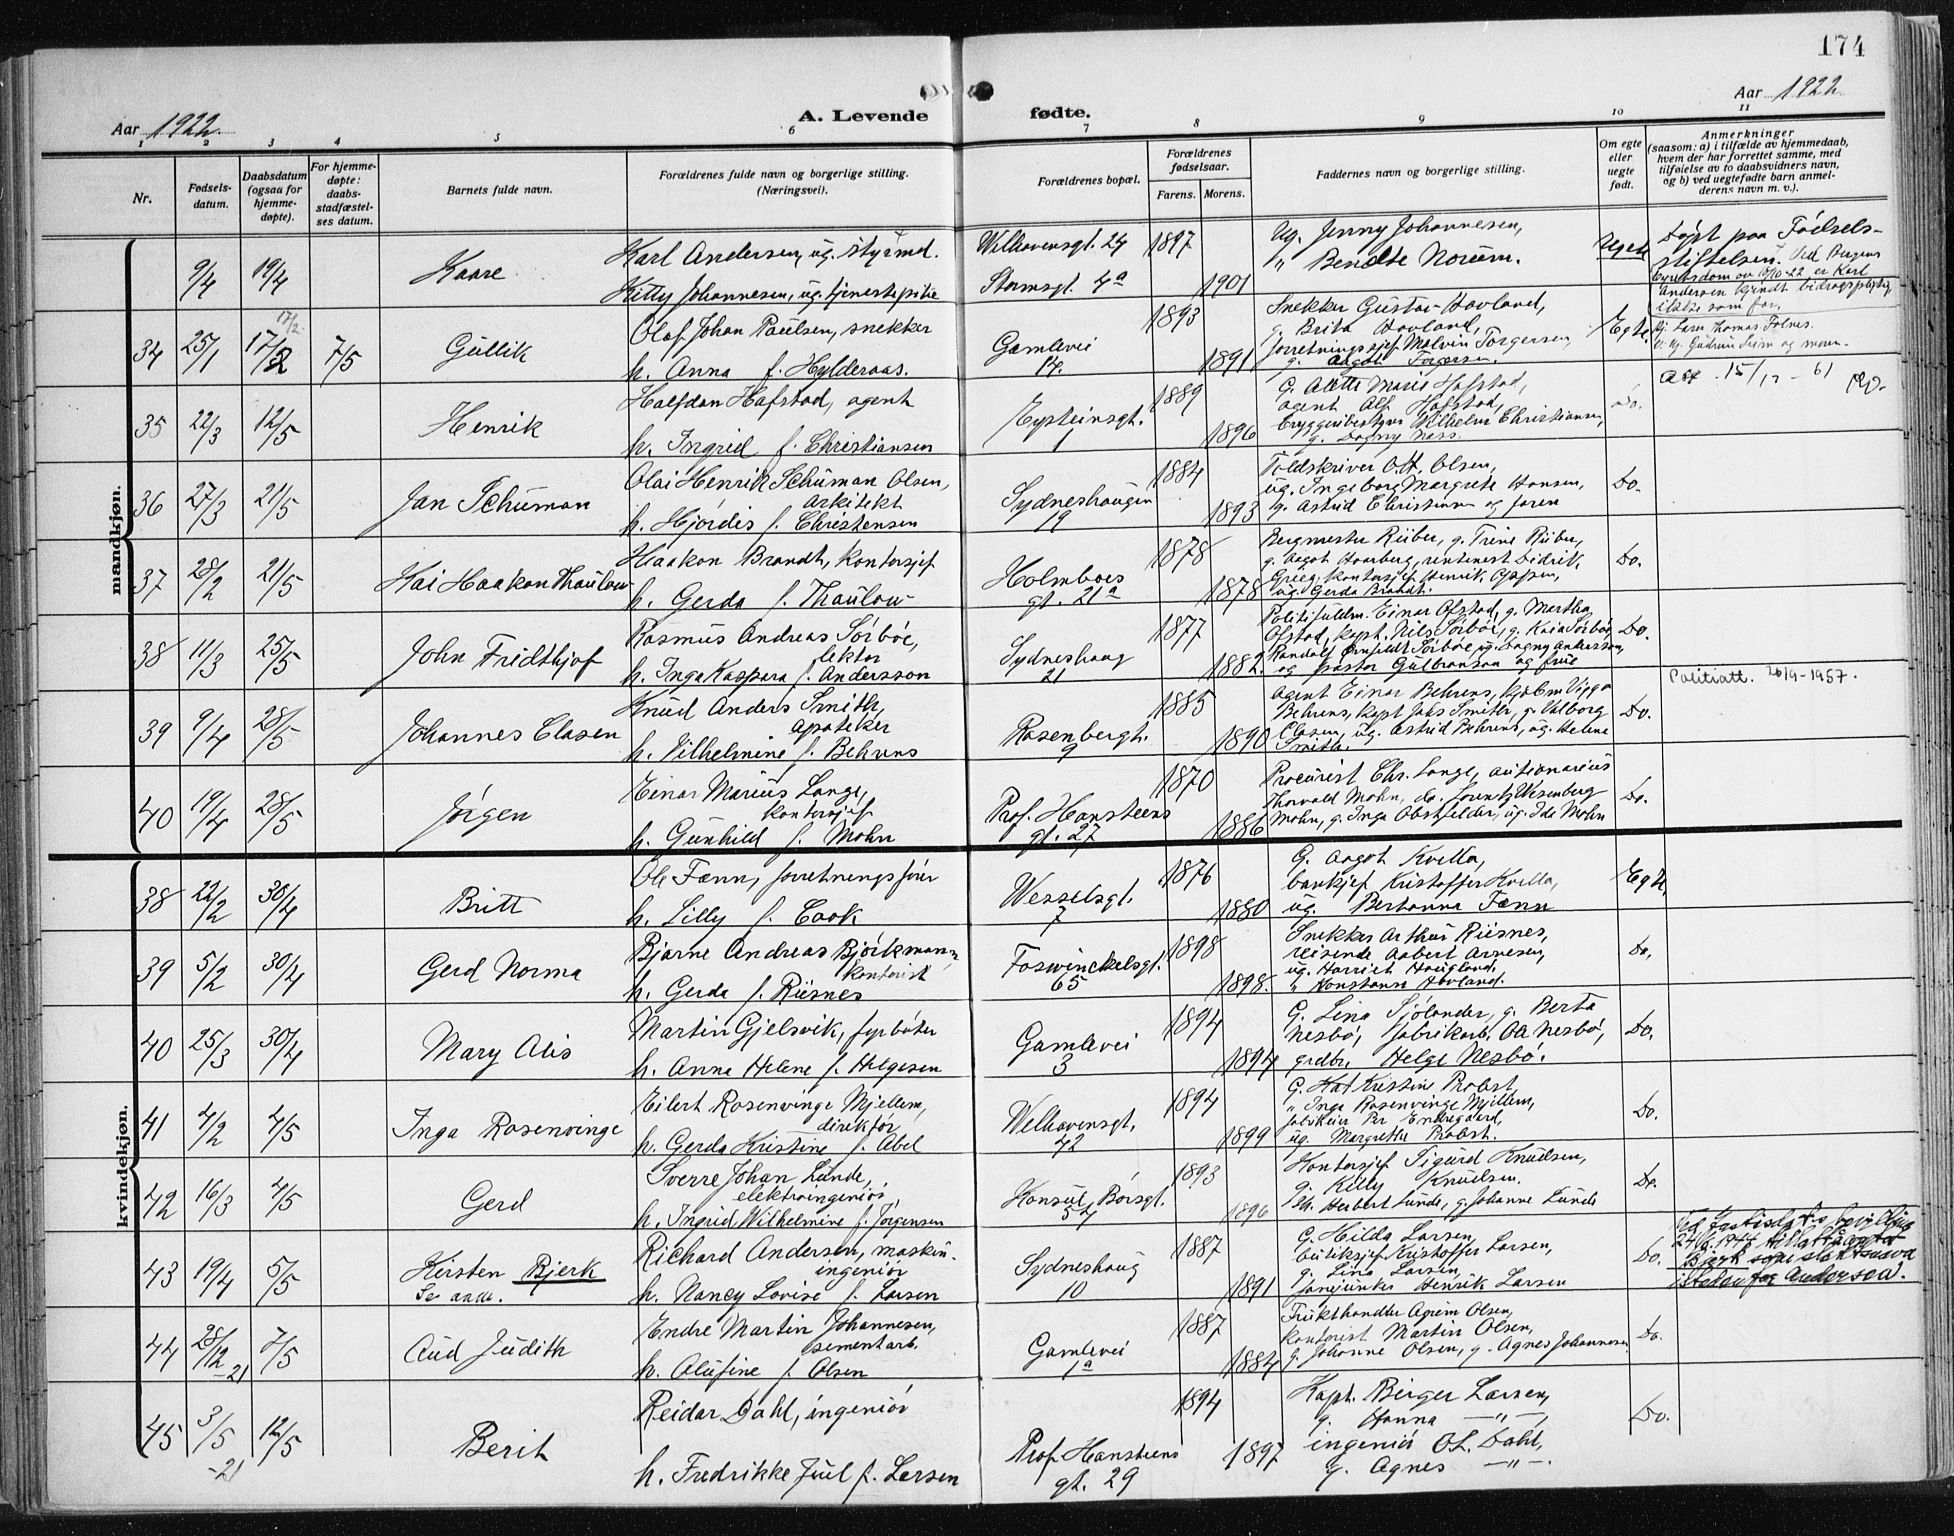 174
Aar 1922
A. Levende fødte.
Aar 1922
1 2 3 4 5 6 7 8 9 10 11
Nr.
Fødsels-
datum.
Daabsdatum
(ogsaa for
hjemme-
døpte).
For hjemme-
døpte:
daabs-
stadfæstel-
ses datum.
Barnets fulde navn.
Forældrenes fulde navn og borgerlige stilling.
(Næringsvei).
Forældrenes bopæl.
Forældrenes
fødselsaar.
Farens. Morens.
Faddernes navn og borgerlige stilling.
Om egte
eller
uegte
født.
Anmerkninger
(saasom: a) i tilfælde av hjemmedaab,
hvem der har forrettet samme, med
tilføielse av to daabsvidners navn,
og b) ved uegtefødte barn anmel-
derens navn m. v.).
mandkjøn.
9/4 19/4 Kaare
Karl Andersen, ug. styrmd.
Kitty Johannesen, ug. tjenestepike
Welhavensgt. 24 1897
Stormsgt. 4a 1901
Ug. Jenny Johannesen,
" Bendte Norum.
Uegte
Døpt paa Fødsels-
stiftelsen. Ved Bergens
Byretsdom av 10/10-22 er Karl
Andersen kjendt bidragspligtig
ikke som far.
34 25/1 17/2 17/2 7/5 Gullik
Olaf Johan Paulsen, snekker
h. Anna f. Hylderaas.
Gamlevei
14.
1893 1891
Snekker Gustav Hovland,
g. Brita Hovland,
forretningssjef Malvin Torgersen,
g. Aagot Torgersen.
Egte.
35 22/3 12/5 Henrik
Halfdan Hafstad, agent
h. Ingrid f. Christiansen
Eysteinsgt.
1
1889 1896
G. Alette Marie Hafstad,
agent Alf Hafstad,
bryggeribestyrer Wilhelm Christiansen,
g. Dagny Næss.
Do.
Att. 15/12 - 61
36 27/3 21/5 Jan Schuman
Olai Henrik Schuman Olsen,
arkitekt
h. Hjørdis f. Christensen
Sydneshaugen
19
1884 1893
Toldskriver O.H. Olsen,
ug. Ingeborg Margrete Hansen,
ug. Astrid Christensen og faren
Do.
37 28/2 21/5 Kai Haakon Thaulow
Haakon Brandt, kontorsjef
h. Gerda f. Thaulow
Holmboes
gt. 21a
1878 1878
Bergmester Riiber, g. Trine Riiber,
g. Aagot Haarberg, rentenist Didrik
Grieg, kontorsjef Henrik Appen,
ug. Gerda Brandt.
Do.
38 11/3 25/5 John Fridthjof
Rasmus Andreas Sørbøe,
lektor
h. Inga Kaspara f. Andersson
Sydneshaug
21
1877 1882.
Politifuldm. Einar Ofstad, g. Martha
Ofstad, kapt. Nils Sørbøe, g. Kaia Sørbøe,
Randolf Arnfeldt Sørbøe, ug. Dagny Andersson,
og pastor Gulbranson og frue
Do.
Politiatt. 20/9-1957.
39 9/4 28/5 Johannes Clasen
Knud Anders Smith,
apoteker
h. Vilhelmine f. Behrens
Rosenbergt.
9
1885 1890
Agent Einar Behrens, kjøbm Viggo
Behrens, kapt Johs Smith, g. Valborg
Clasen, ug. Astrid Behrens, ug. Helene
Smith.
Do.
40 19/4 28/5 Jørgen
Einar Marius Lange,
kontorsjef
h. Gunhild f. Mohn
Prof. Hansteens
gt. 27
1870 1886
Procurist Chr. Lange, auktionarius
Thorvald Mohn, do. Lorentz Wesenberg
Mohn, g. Inga Obstfelder, ug. Ida Mohn
Do.
kvindekjøn.
38 22/2 30/4 Britt
Ole Fænn, forretningsfører
h. Lilly f. Cook
Wesselsgt.
7
1876 1880
G. Aagot Kvella,
banksjef Kristoffer Kvella,
ug. Bertanna Fænn
Egte
39 5/2 30/4 Gerd Norma
Bjarne Andreas Bjørkmann,
kontorist
h. Gerda f. Riisnes
Foswinckelsgt.
65
1898 1898.
Snekker Arthur Riisnes,
reisende Asbert Arnesen,
ug. Harriet Haugland,
" Konstanse Hovland.
Do.
40 25/3 30/4 Mary Alis
Martin Gjelsvik, fyrbøter
h. Anna Helene f. Helgesen
Gamlevei
3
1894 1894
G. Lina Sjølander, g. Berta
Nesbø, fabrikarb. Ole Nesbø,
grdbr. Helge Nesbø.
Do.
41 4/2 4/5 Inga Rosenvinge
Eilert Rosenvinge Mjellem,
direktør
h. Gerda Kristine f. Abel
Welhavensgt.
42
1894 1899
G. Kat Kristine Probst,
" Inga Rosenvinge Mjellem,
fabrikeier Per Endregaard,
ug. Margrethe Probst.
Do.
42 16/3 4/5 Gerd
Sverre Johan Lunde,
elektroingeniør,
h. Ingrid Wilhelmine f. Jørgensen
Konsul Børsgt.
54
1893 1896
Kontorsjef Sigurd Knudsen,
g. Kelly Knudsen.
Herbert Lunde, g. Johanne Lunde
Do.
43 19/4 5/5 Kirsten Bjerk
Se anm.
Richard Andersen, maskin-
ingeniør
h. Nancy Lovise f. Larsen
Sydneshaug
10
1887 1891
G. Hilda Larsen,
butiksjef Kristoffer Larsen,
g. Lina Larsen,
fanejunker Henrik Larsen
Do.
44 28/12 -21 7/5 Aud Judith
Endre Martin Johannesen,
sementarb.
h. Olufine f. Olsen
Gamlevei
1a
1887 1884
Frukthandler Agrim Olsen,
kontorist Martin Olsen,
g. Johanne Olsen, g. Agnes Johannesen
Do.
45 3/5 -21 12/5 Berit
Reidar Dahl, ingeniør
h. Fredrikke Juul f. Larsen
Prof. Hansteens
gt. 29
1894 1897
Kapt. Birger Larsen,
g. Hanna —"—,
ingeniør O. L. Dahl,
g. Agnes —"—.
Do.